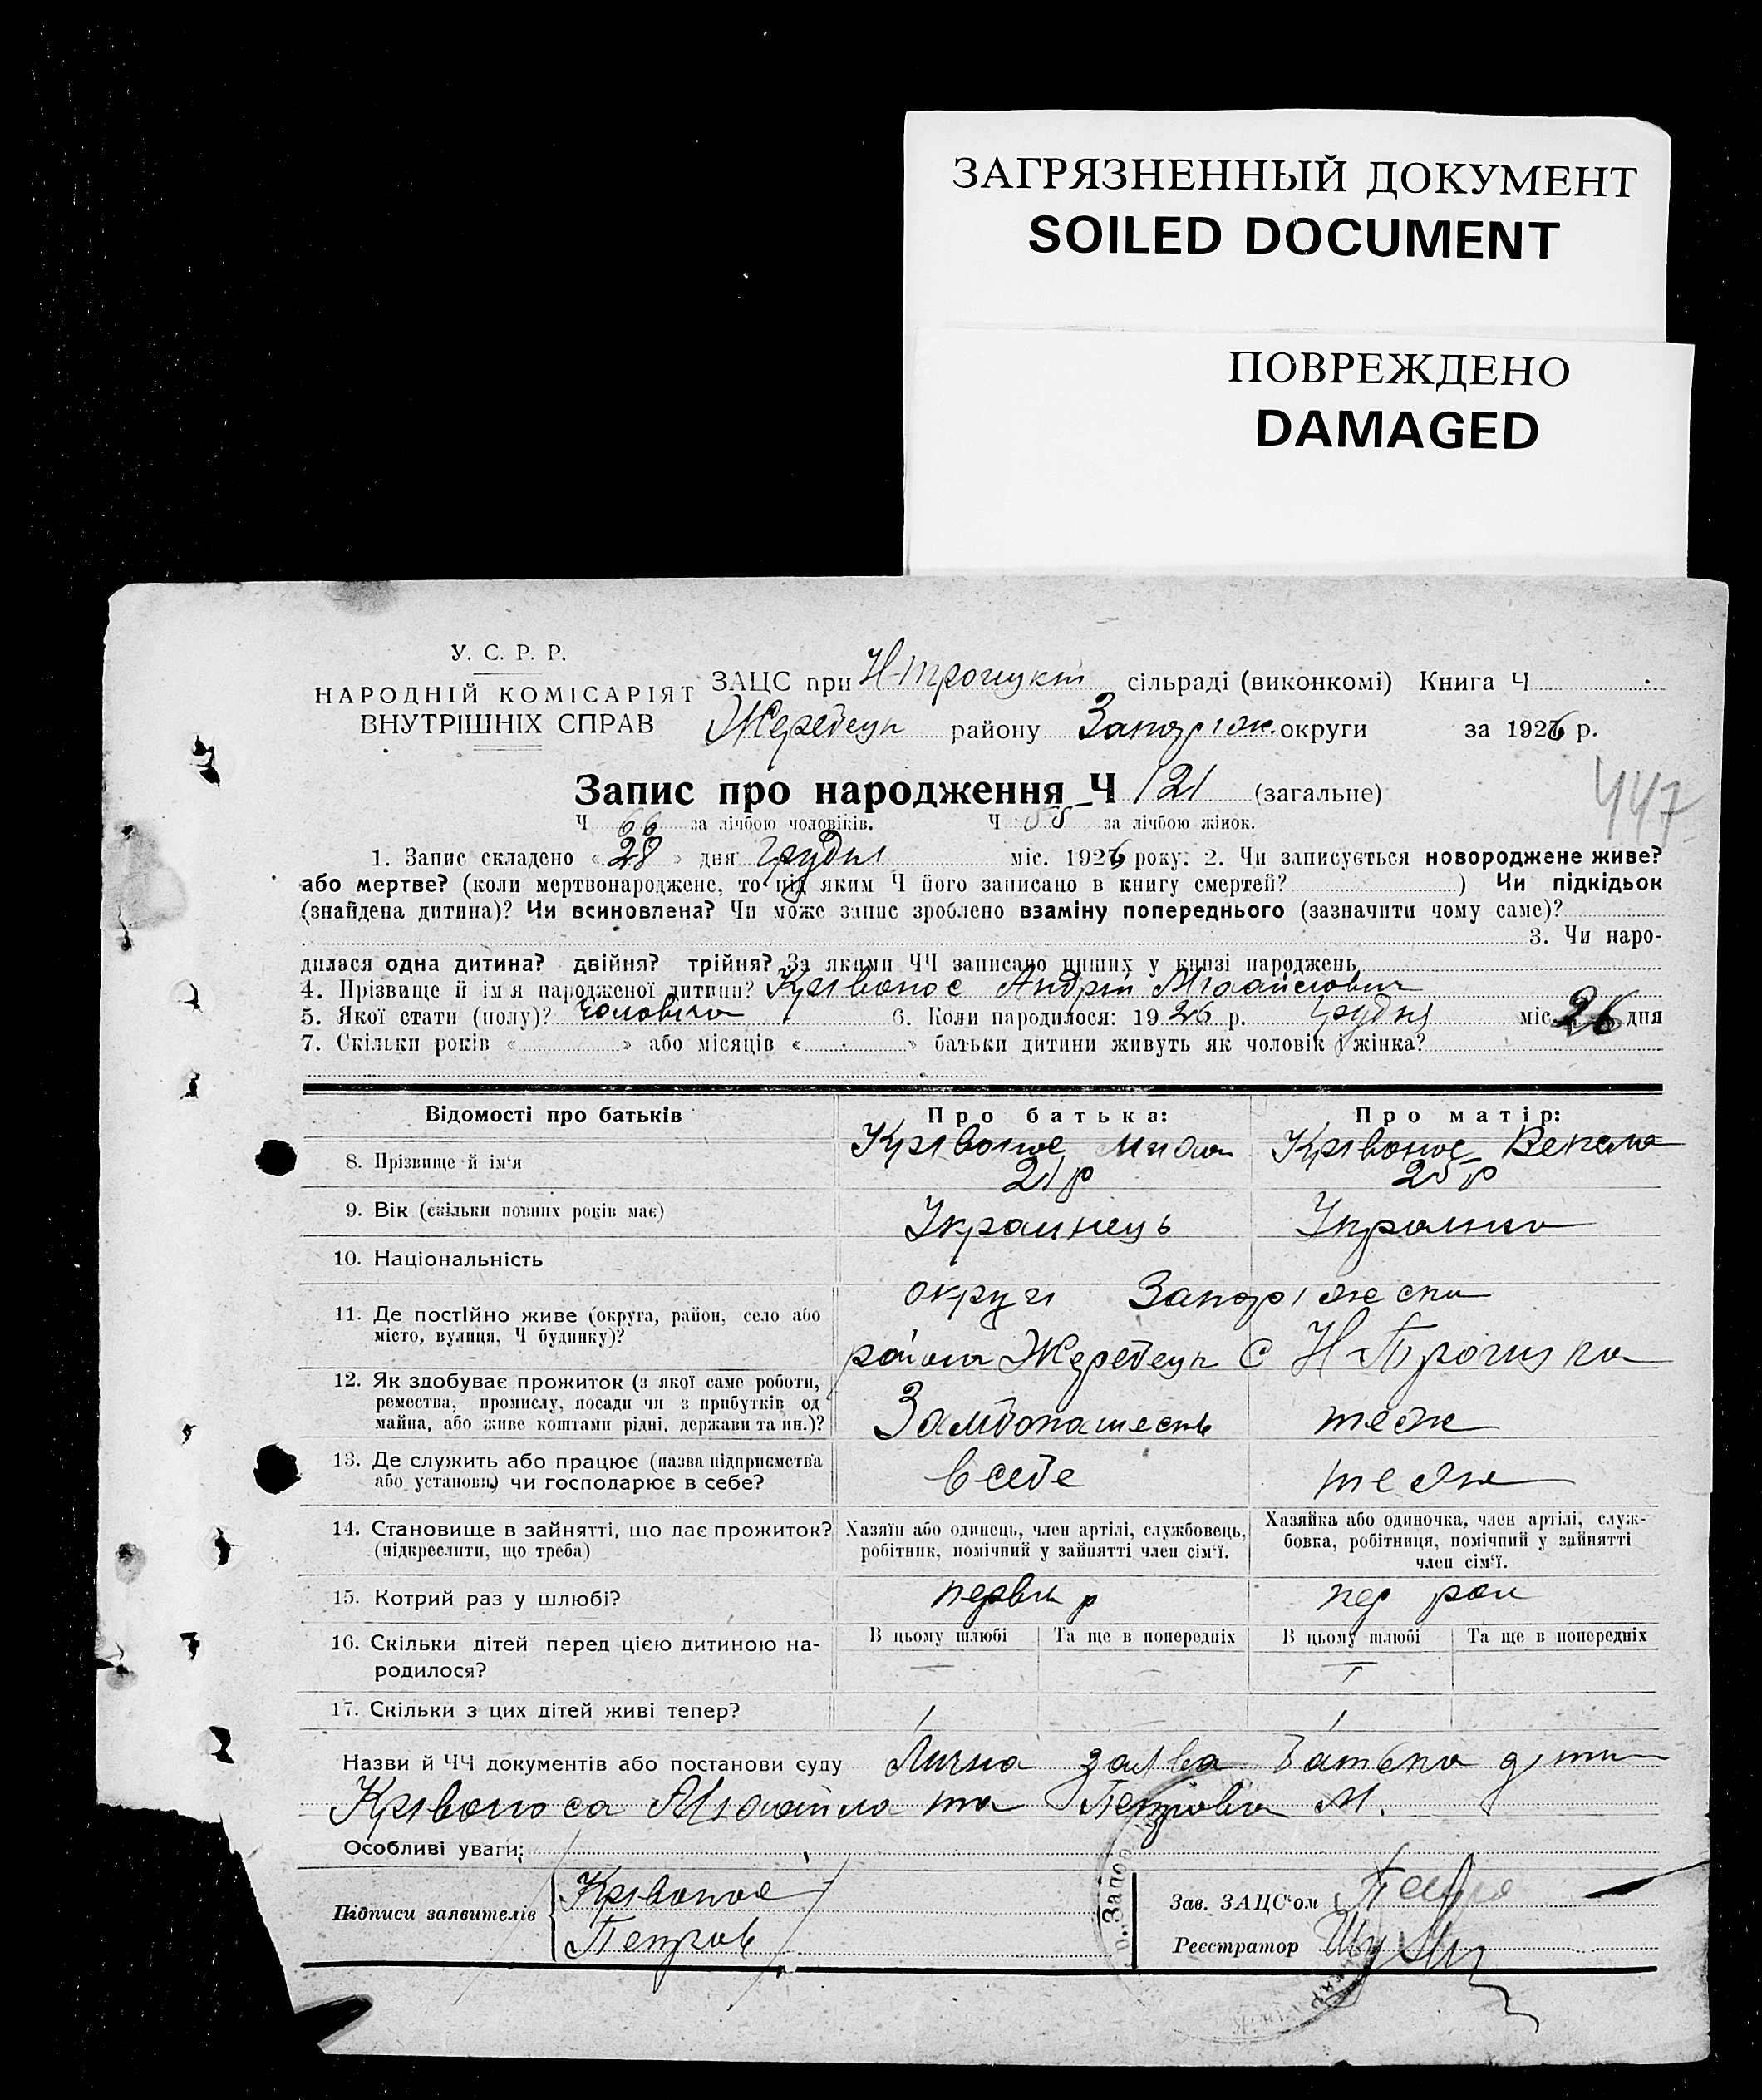 ЗАГРЯЗНЕННЫЙ ДОКУМЕНТ
SOILED DOCUMENT
ПОВРЕЖДЕНО
DAMAGED
У. С. Р. Р.
НАРОДНІЙ КОМІСАРІЯТ
ВНУТРІШНІХ СПРАВ
ЗАЦС при Н-Троицкій сільраді (виконкомі) Книга Ч
Жеребець району Запоріж. округи за 1926 р.
Запис про народження Ч 121 (загальне)
447
Ч 66 за лічбою чоловіків. Ч 55 за лічбою жінок.
1. Запис складено « 28 » дня Грудня міс. 1926 року. 2. Чи записується новороджене живе?
або мертве? (коли мертвонароджене, то під яким Ч його записано в книгу смертей? ) Чи підкідьок
(знайдена дитина)? Чи всиновлена? Чи може запис зроблено взаміну попереднього (зазначити чому саме)?
3. Чи наро-
дилася одна дитина? двійня? трійня? За якими ЧЧ записано инших у книзі народжень
4. Прізвище й ім'я народженої дитини? Крівонос Андрій Міхайлович
5. Якої стати (полу)? Чоловіча 6. Коли народилося: 1926 р. Грудня міс. 26 дня
7. Скільки років « » або місяців « » батьки дитини живуть як чоловік і жінка?
Відомості про батьків Про батька: Про матір:
8. Прізвище й ім'я Крівонос Крівонос
21 р 25 р
9. Вік (скільки повних років має)
Українець Українка
10. Національність
округи Запоріжски
11. Де постійно живе (округа, район, село або
місто, вулиця, Ч будинку)?
района Жеребець с Н-Троицка
12. Як здобуває прожиток (з якої саме роботи,
ремества, промислу, посади чи з прибутків од
майна, або живе коштами рідні, держави та ин.)?
теж
13. Де служить або працює (назва підприємства
або установи) чи господарює в себе?
в себе теж
14. Становище в зайнятті, що дає прожиток?
(підкреслити, що треба)
Хазяїн або одинець, член артілі, службовець,
робітник, помічний у зайнятті член сім'ї.
Хазяйка або одиночка, член артілі, служ-
бовка, робітниця, помічний у зайнятті
член сім'ї.
15. Котрий раз у шлюбі? первий р пер раз
16. Скільки дітей перед цією дитиною на-
родилося?
В цьому шлюбі Та ще в попередніх В цьому шлюбі Та ще в попередніх
17. Скільки з цих дітей живі тепер? 1 1
Назви й ЧЧ документів або постанови суду Лична заява батька дітини
Крівоноса Міхайла та Петрова М.
Особливі уваги:
Підписи заявителів Крівонос
Петров
Зав. ЗАЦС'ом
Реєстратор